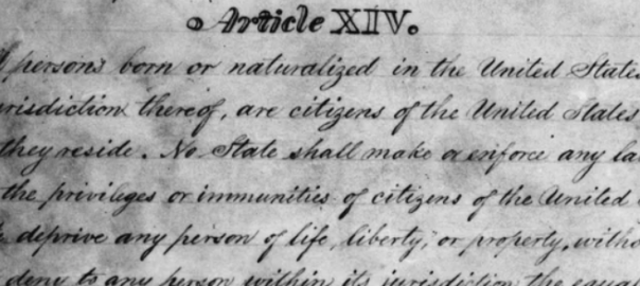 Article XIV.
persons born or naturalized in the United States
jurisdiction thereof, are citizens of the United States
they reside. No State shall make or enforce any la
the privileges or immunities of citizens of the United
deprive any person of life, liberty, or property, witho
deny to any person within its jurisdiction the equa